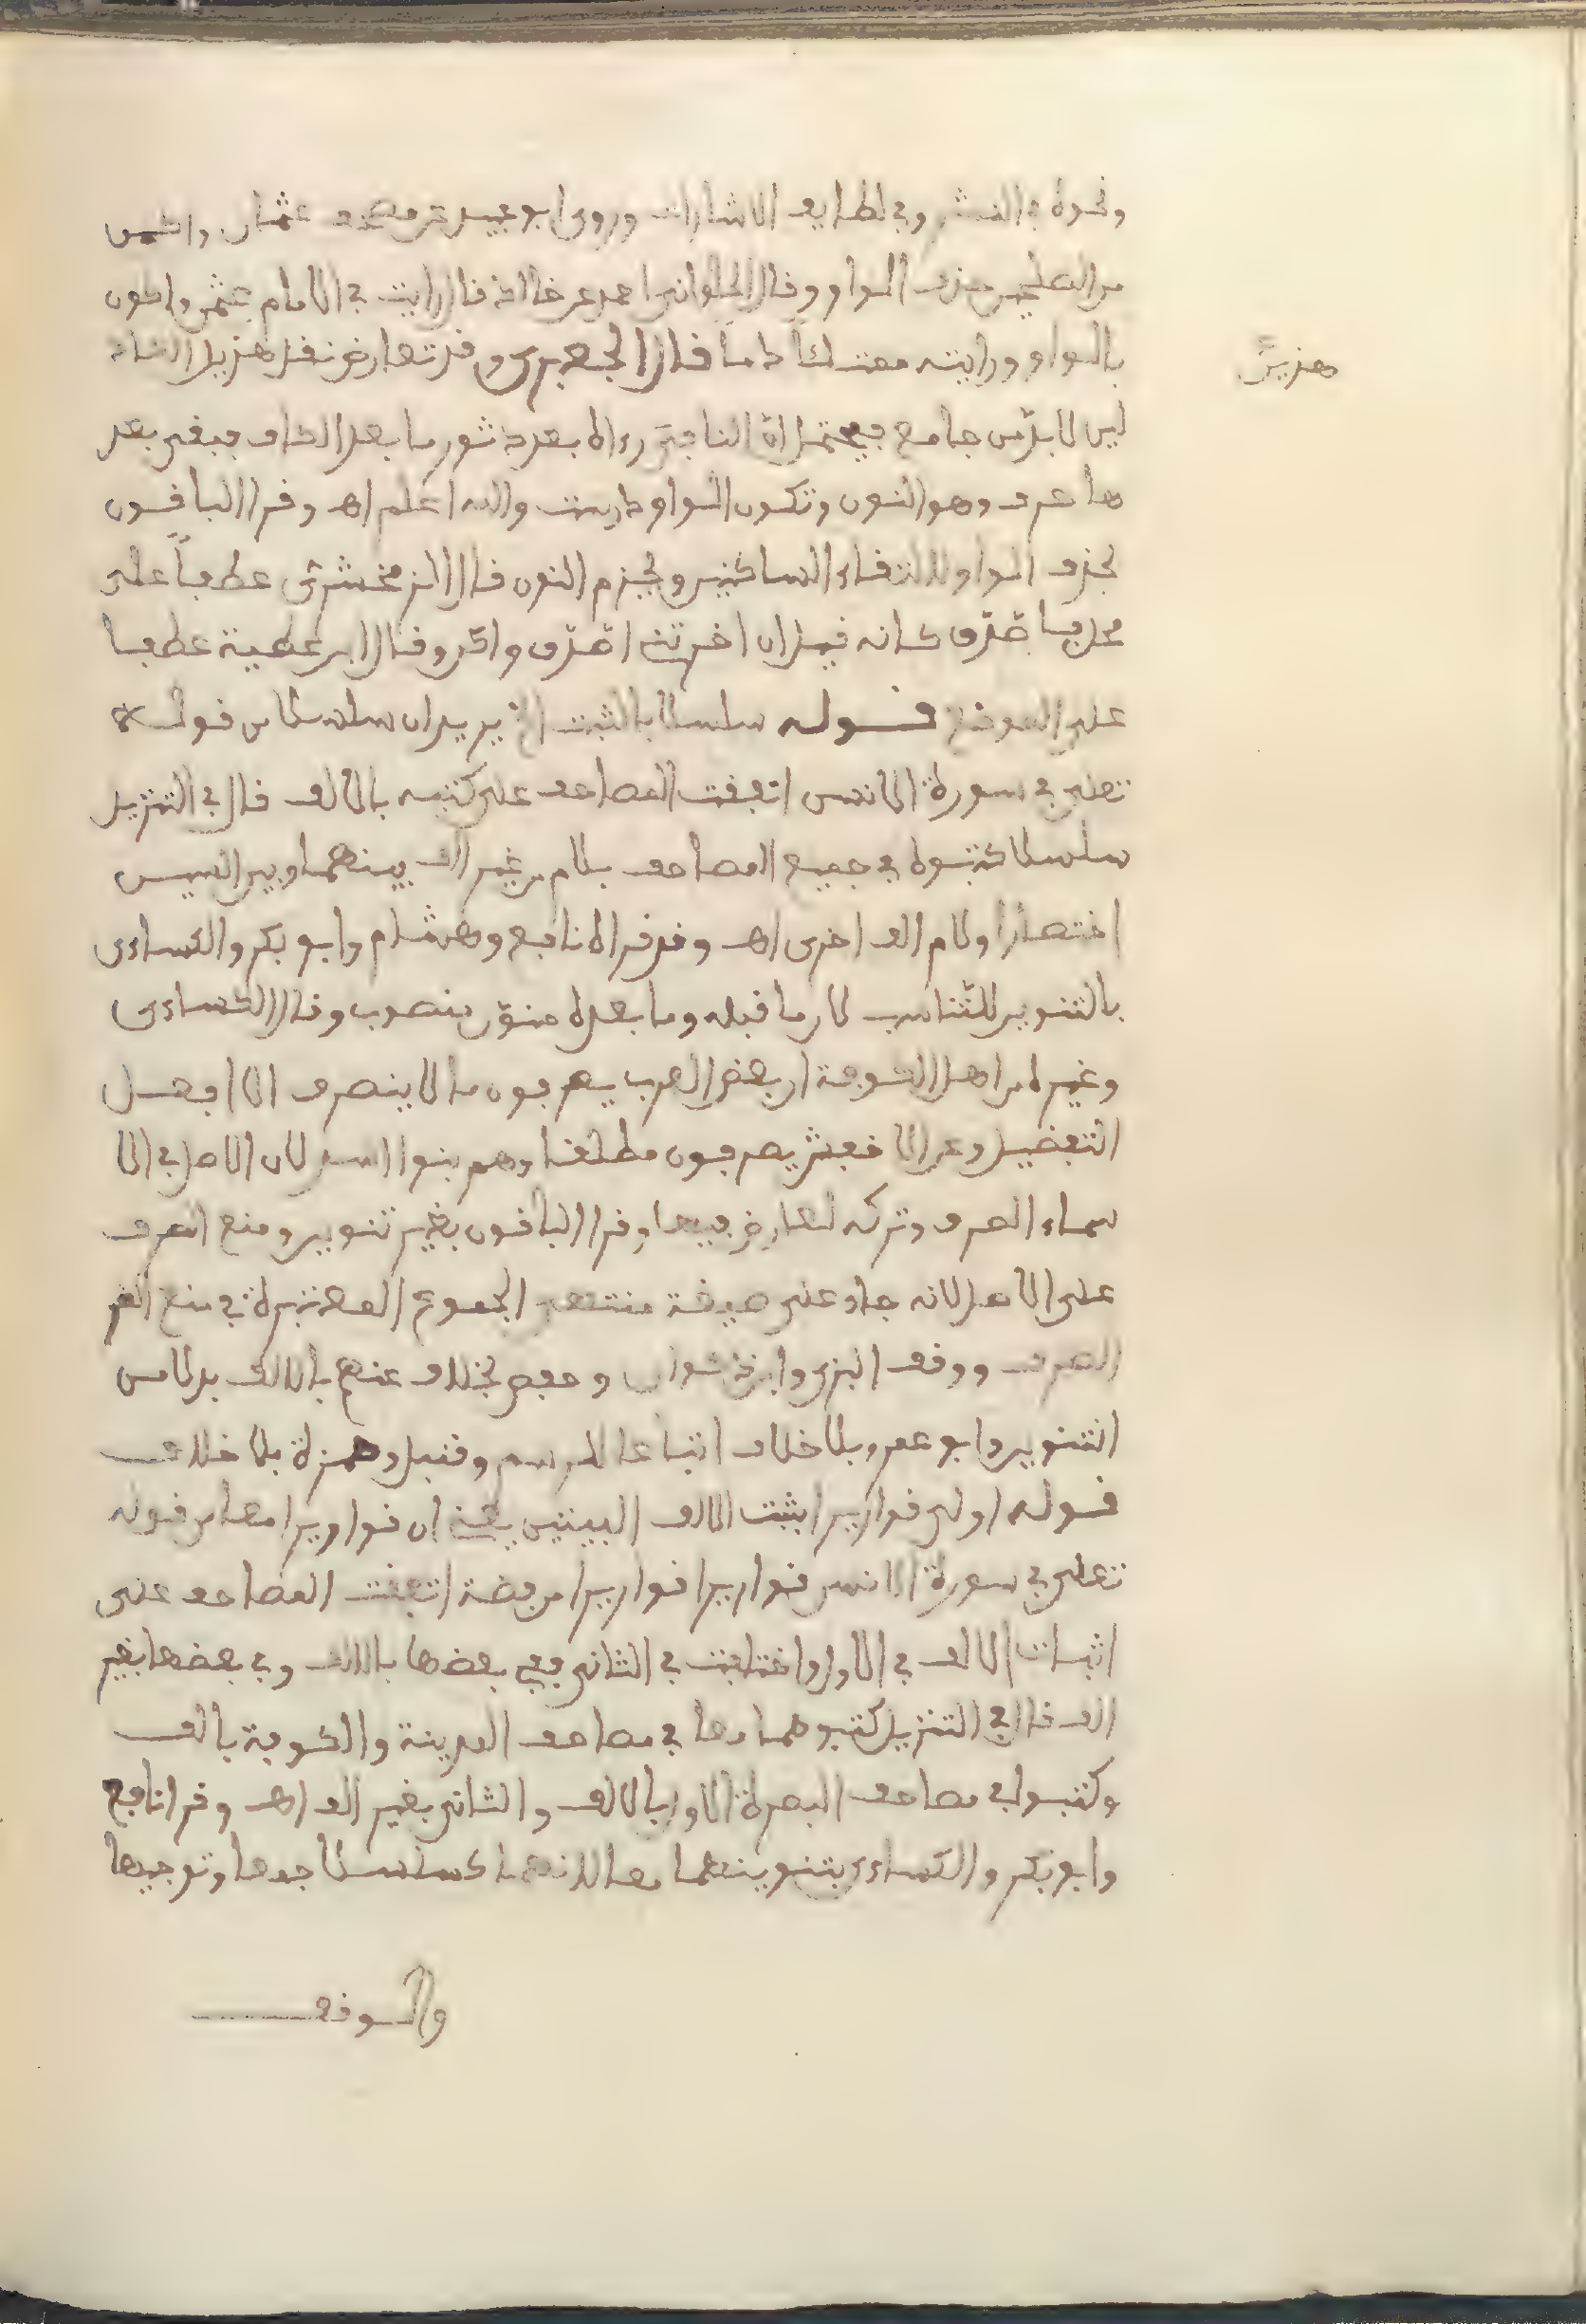 ونحوه في النشر وفي لطايف الاشارات وروى ابو عبيد عن مصحف عثمان واكن
من الصلحين بحذف الواو وقال الحلواني احمد عن خالد قال رايت في الامام عثمن واكون
بالواو ورايته ممتلئا دما قال الجعبري وقد تعارض نقل هذين
هذين
ليس لا بد من جامع فيحتمل ان النافي رءاه بعد دثور ما بعد الكاف فبقي بعد
ها حرف وهو النون وتكون الواو درست والله اعلم اهـ وقرا الباقون
بحذف الواو لالتقاء الساكنين وبجزم النون قال الزمخشري عطفا على
محل فاصدق كانه قيل ان اخرتني اصدق واكن وقال ابن عطية عطفا
على الموضع قوله سلسلا بالثبت الخ يريد ان سلسلا من قوله
تعلى في سورة الانسن اتفقت المصاحف على كتبه بالالف قال في التنزيل
سلسلا كتبوه في جميع المصاحف بلام من غير الف بينهما وبين السين
اختصارا ولام الف اخرى اهـ وقد قراه نافع وهشام وابو بكر والكساءي
بالتنوين للتناسب لان ما قبله وما بعده منون منصوب وقال الكساءي
وغيره من اهل الكوفة ان بعض العرب يصرفون ما لا ينصرف الا افعل
التفضيل وعن الاخفش يصرفون مطلقا وهم بنوا اسد لان الاصل في الا
سماء الصرف وتركه لعارض فيها وقرا الباقون بغير تنوين ومنع الصرف
على الاصل لانه جاء على صيغة منتهى الجموع المعتبرة في منع
الصرف ووقف البزي وابن ذكوان وحفص بخلاف عنهم بالالف بدلا من
التنوين وابو عمرو بلا خلاف اتباعا للرسم وقنبل وحمزة بلا خلاف
قوله اولى قواريرا بثبت الالف البيتين يعني ان قواريرا معا من قوله
تعلى في سورة الانسن قواريرا قواريرا من فضة اتفقت المصاحف على
اثبات الالف في الاول واختلفت في الثاني ففي بعضها بالالف وفي بعضها بغير
الف قال في التنزيل كتبوهما معا في مصاحف المدينة والكوفة بالف
وكتبوا في مصاحف البصرة الاول بالالف والثاني بغير الف اهـ وقرا نافع
وابو بكر والكساءي بتنوينهما معا لانهما كسلسلا جمعا وتوجيها
والوقف